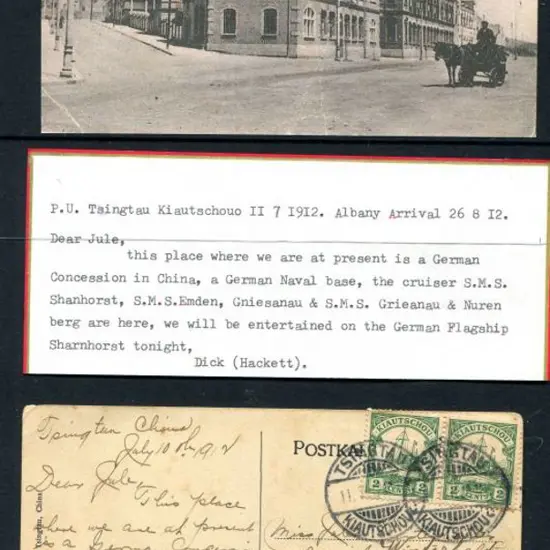 P.U. Tsingtau Kiautschouo II 7 I9I2. Albany Arrival 26 8 I2.
Dear Jule,
this place where we are at present is a German
Concession in China, a German Naval base, the cruiser S.M.S.
Shanhorst, S.M.S.Emden, Gniesanau & S.M.S. Grieanau & Nuren
berg are here, we will be entertained on the German Flagship
Sharnhorst tonight,
Dick (Hackett).
Tsingtau China
July 10th 1912
Dear Jule,
This place
where we are at present
is a German
POSTKA
KIAUTSCHOU
KIAUTSCHOU
2 CENTS 2
2 CENTS 2
TSINGTAU
KIAUTSCHOU
TSINGTAU
KIAUTSCHOU
Miss
Tsingtau, China